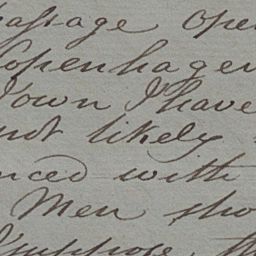 passage ope
Copenhagen
Town I have
not likely
nced with
Men sho
I suppose th